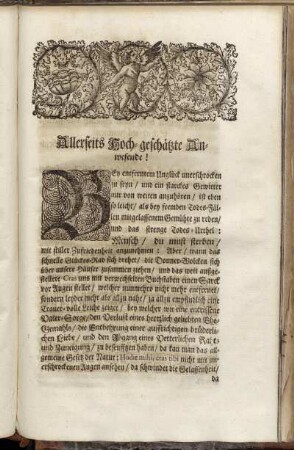 Allerseits Hoch-geschätzte An-
wesende!
BEy entferntem Unglück unerschrocken
zu seyn / und ein starckes Gewitter
nur von weiten anzuhören / ist eben
so leicht / als bey fremden Todes-Fäl-
len mit gelassenem Gemühte zu reden /
und das strenge Todes-Urtheil:
Mensch / du must sterben /
mit stiller Zufriedenheit anzunehmen. Aber / wann das
schnelle Glückes-Rad sich drehet / die Donner-Wolcken sich
über unsere Häuser zusammen ziehen / und das weit ausge-
stellete Cras uns mit verwechselten Buchstaben einen Sarck
vor Augen stellet / welcher nunmehro nicht mehr entfernet /
sondern leyder nicht als allzu nahe / ja allzu empfindlich eine
Trauer-volle Leiche zeiget / bey welcher wir eine entrissene
Vater-Sorge / den Verlust eines hertzlich geliebten Ehe-
Gemahls / die Entbehrung einer auffrichtigen brüderli-
chen Liebe / und den Abgang eines Vetterlichen Raht
und Zuneigung / zu beseufftzen haben / da kan man das all-
gemeine Gesetz der Natur: Hodie mihi, cras tibi nicht mit un-
erschrockenen Augen ansehen / da schwindet die Gelassenheit /
da